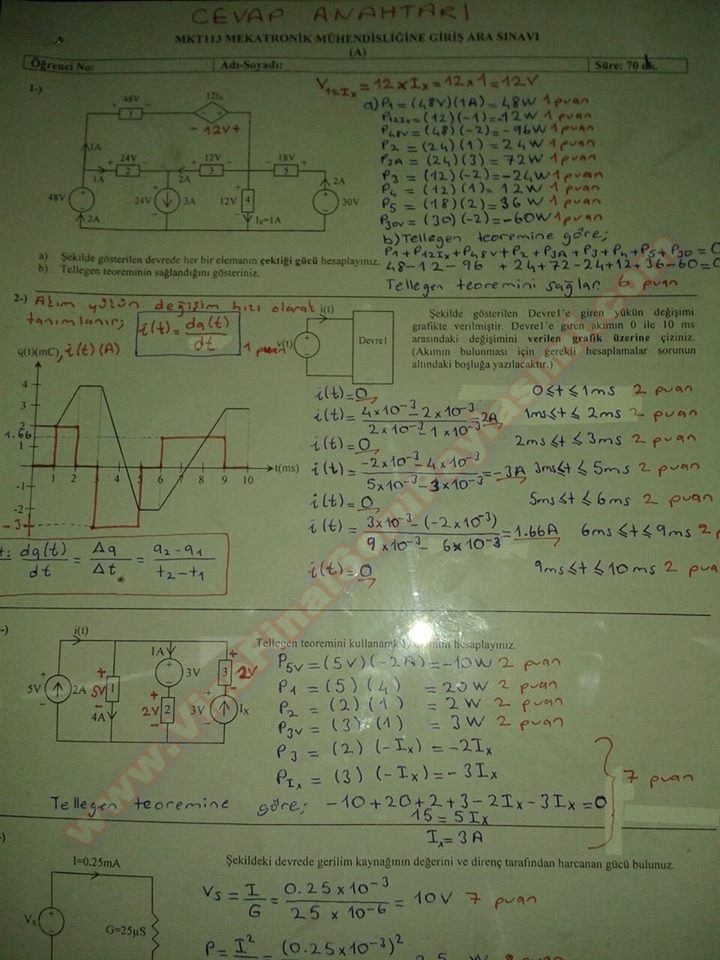 CEVAP ANAHTARI
MKT1113 MEKATRONİK MÜHENDİSLİĞİNE GİRİŞ ARA SINAVI
(A)
Öğrenci No: Adı-Soyadı: Süre: 70 dk.
1-)
V12Ix = 12 x Ix = 12 x 1 = 12V
48V 12Ix
1
- 12V +
1A
1A 24V 12V 2A 18V
2 3 5
48V 2A 24V 3A 12V 4 Ix=1A 2A 30V
a) P1 = (48V)(1A) = 48W 1 puan
P12Ix = (12)(-1) = -12W 1 puan
P48V = (48)(-2) = -96W 1 puan
P2 = (24)(1) = 24W 1 puan
P3A = (24)(3) = 72W 1 puan
P3 = (12)(-2) = -24W 1 puan
P4 = (12)(1) = 12W 1 puan
P5 = (18)(2) = 36W 1 puan
P30V = (30)(-2) = -60W 1 puan
b) Tellegen teoremine göre;
P1 + P12Ix + P48V + P2 + P3A + P3 + P4 + P5 + P30 = 0
48 - 12 - 96 + 24 + 72 - 24 + 12 + 36 - 60 = 0
Tellegen teoremini sağlar. 6 puan
a) Şekilde gösterilen devrede her bir elemanın çektiği gücü hesaplayınız.
b) Tellegen teoreminin sağlandığını gösteriniz.
2-) Akım yükün değişim hızı olarak
tanımlanır; i(t) = dq(t)/dt 1 puan
i(t)
v(t) Devre1
Şekilde gösterilen Devre1'e giren yükün değişimi
grafikte verilmiştir. Devre1'e giren akımın 0 ile 10 ms
arasındaki değişimini verilen grafik üzerine çiziniz.
(Akımın bulunması için gerekli hesaplamalar sorunun
altındaki boşluğa yazılacaktır.)
q(t)(mC), i(t) (A)
4
3
2
1.66
1
1 2 3 4 5 6 7 8 9 10 t(ms)
-1
-2
-3
i(t) = 0 0≤t≤1ms 2 puan
i(t) = 4x10-3 - 2x10-3 / 2x10-3 - 1x10-3 = 2A 1ms≤t≤2ms 2 puan
i(t) = 0 2ms≤t≤3ms 2 puan
i(t) = -2x10-3 - 4x10-3 / 5x10-3 - 3x10-3 = -3A 3ms≤t≤5ms 2 puan
i(t) = 0 5ms≤t≤6ms 2 puan
i(t) = 3x10-3 - (-2x10-3) / 9x10-3 - 6x10-3 = 1.66A 6ms≤t≤9ms 2 p
i(t) = 0 9ms≤t≤10ms 2 puan
t: dq(t)/dt = Δq/Δt = q2-q1/t2-t1
-)
i(t)
1A
5V 2A 5V 1 4A 3V 2V 2 3 2V 3V Ix
Tellegen teoremini kullanarak hesaplayınız.
P5V = (5V)(-2A) = -10W 2 puan
P1 = (5)(4) = 20W 2 puan
P2 = (2)(1) = 2W 2 puan
P3V = (3)(1) = 3W 2 puan
P3 = (2)(-Ix) = -2Ix
PIx = (3)(-Ix) = -3Ix
7 puan
Tellegen teoremine göre; -10+20+2+3-2Ix-3Ix=0
15 = 5Ix
Ix = 3A
-)
I=0.25mA
Vs
G=25µS
Şekildeki devrede gerilim kaynağının değerini ve direnç tarafından harcanan gücü bulunuz.
Vs = I/G = 0.25x10-3 / 25x10-6 = 10V 7 puan
P = I2 (0.25x10-3)2